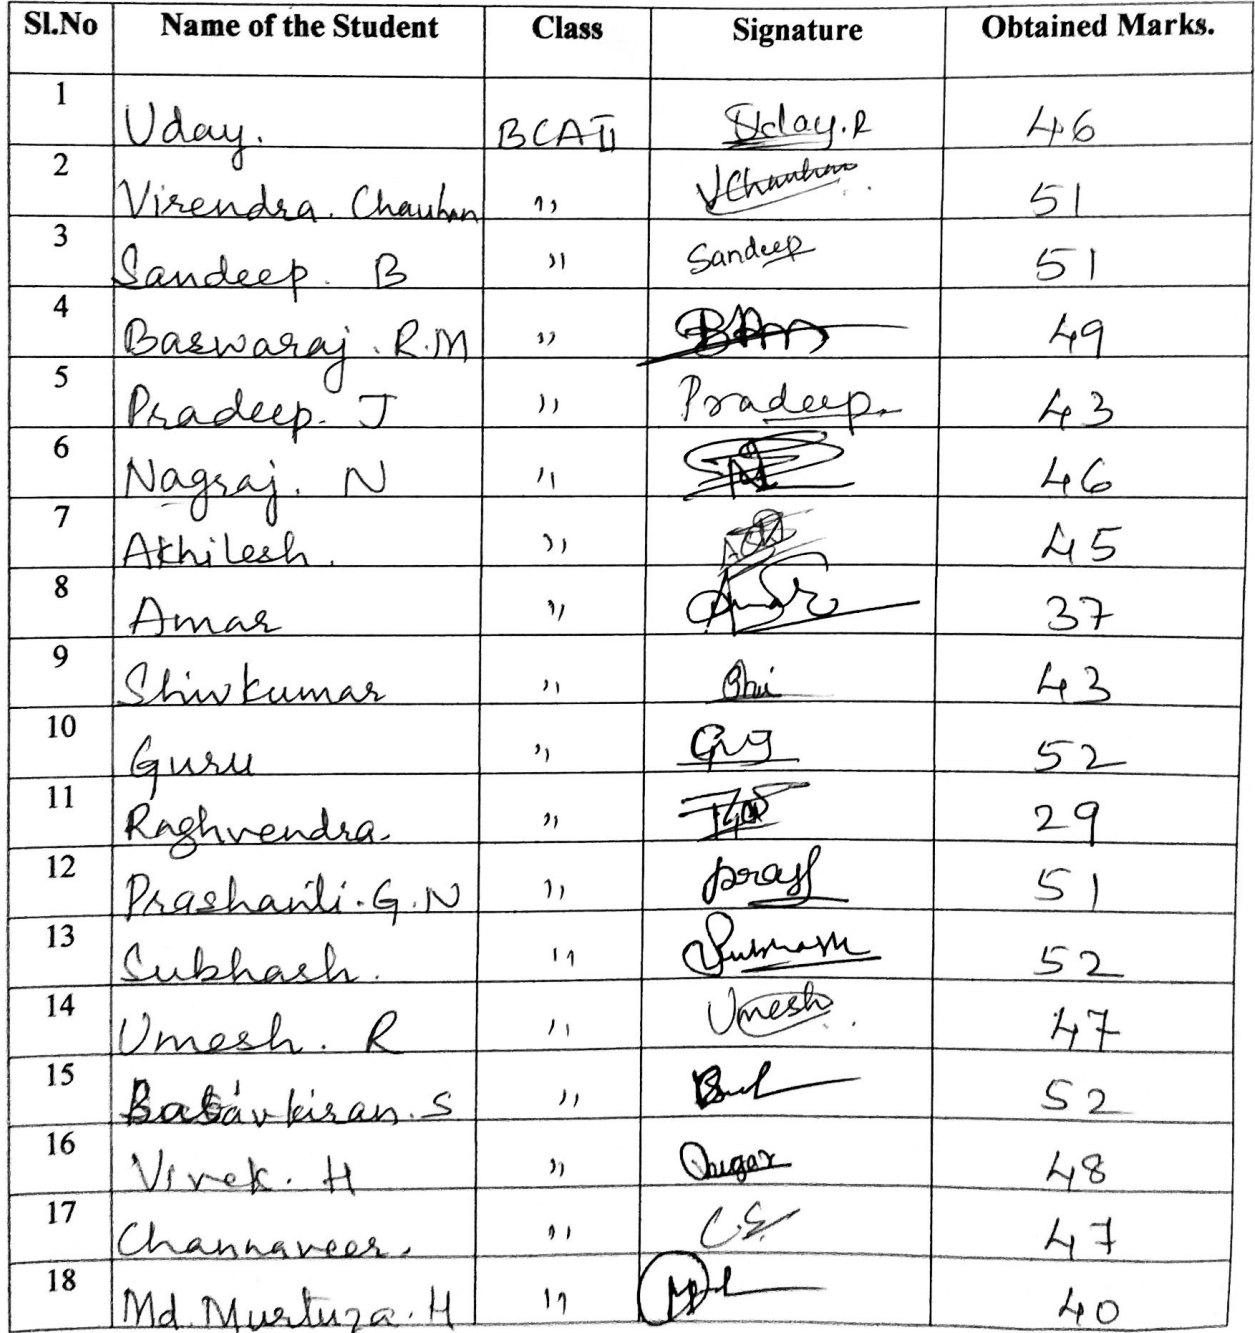 Sl.No Name of the Student Class Signature Obtained Marks.
1 Uday. BCA II Uday.R 46
2 Virendra. Chauhan " VChauhan 51
3 Sandeep. B " Sandeep 51
4 Baswaraj. R.M " 49
5 Pradeep. J " Pradeep. 43
6 Nagraj. N " 46
7 Akhilesh. " 45
8 Amar " Amar 37
9 Shivkumar " 43
10 Guru " 52
11 Raghvendra. " 29
12 Prashanth.G.N " 51
13 Subhash. " Subhash 52
14 Umesh. R " Umesh 47
15 S " 52
16 Vivek. H " 48
17 Channaveer. " 47
18 Md.Murtuza.H " 40